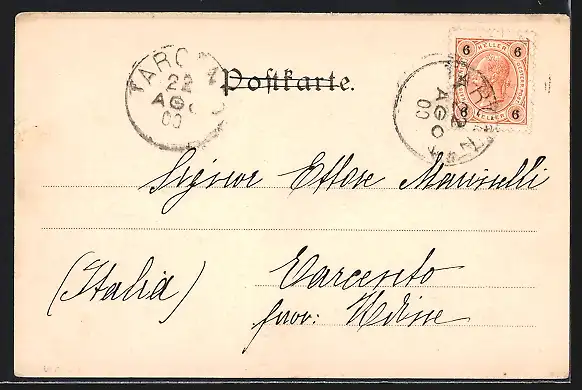 TARCEN
22
AGO
00
Postkarte.
6 HELLER 6
6 HELLER 6
AGO
00
Signor Ettore
(Italia) Tarcento
prov: Udine